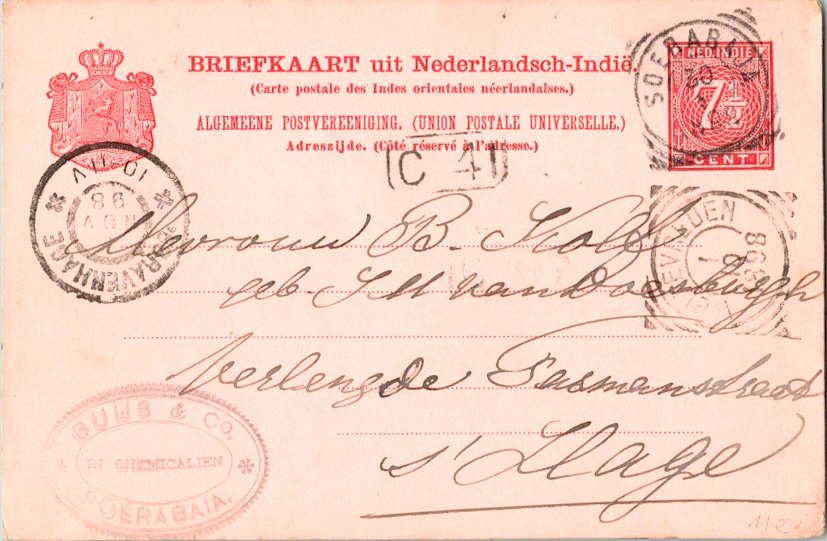 BRIEFKAART uit Nederlandsch-Indië.
(Carte postale des Indes orientales néerlandaises.)
ALGEMEENE POSTVEREENIGING. (UNION POSTALE UNIVERSELLE.)
Adreszijde. (Côté réservé à l'adresse.)
NED. INDIE
7½
CENT
SOERABAJA
30
C 41
'S GRAVENHAGE
10-11V
NOV
98
Mevrouw B. Kolff
geb. van Doesburgh
Verlengde Tasmanstraat
s' Hage
BUIJS & Co.
IN CHEMICALIEN
SOERABAIA.